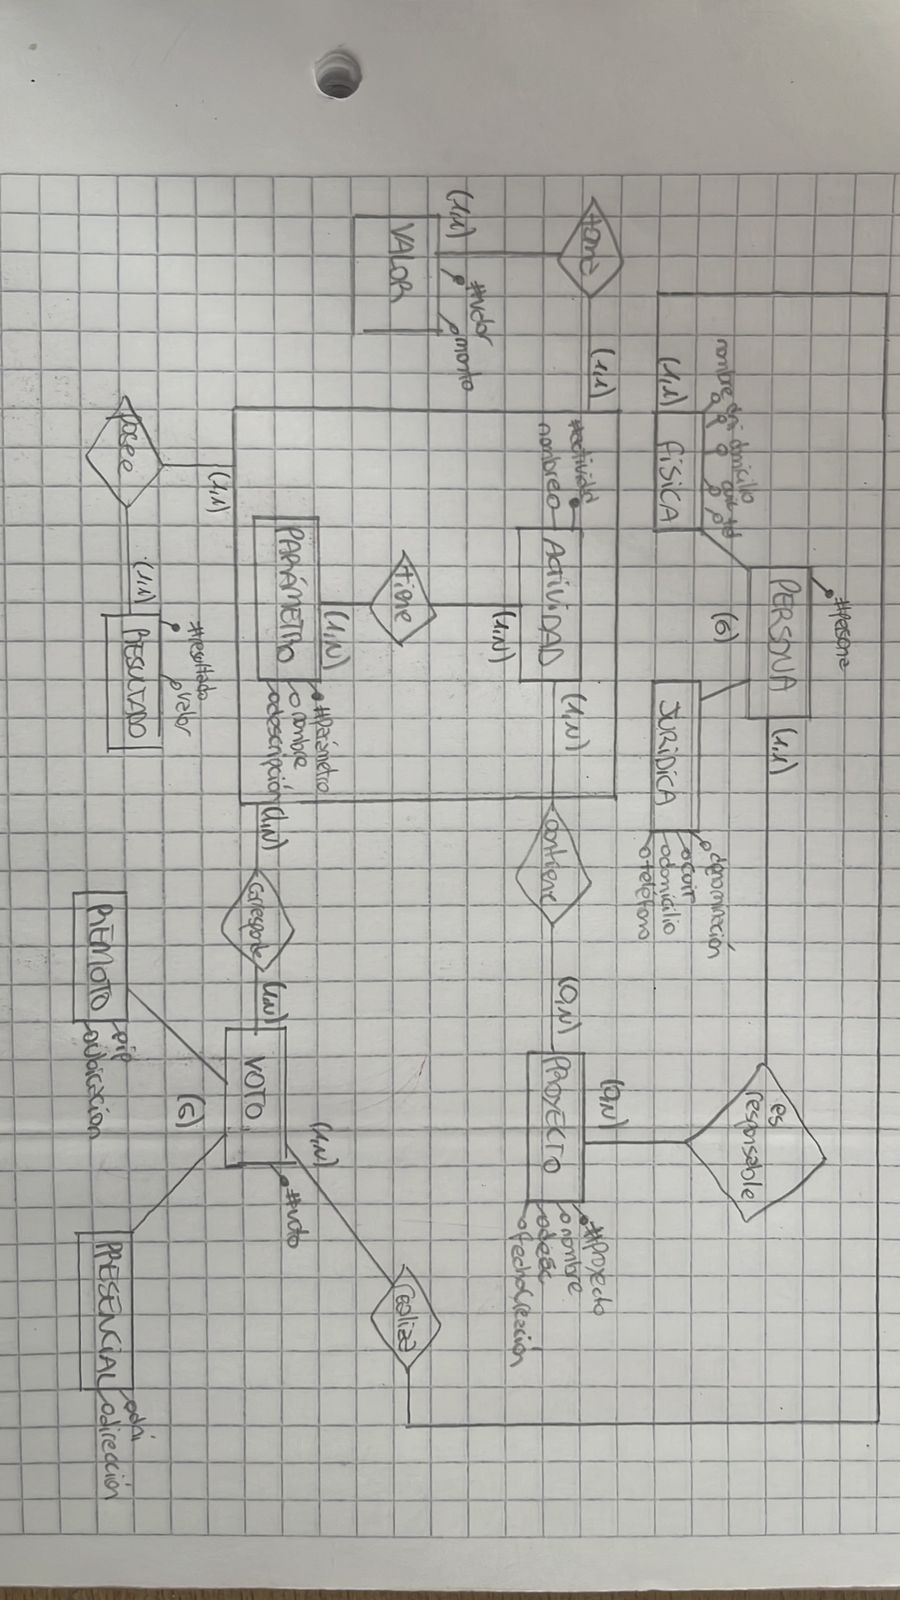 #persona
PERSONA
(1,1)
es
responsable
(6)
nombre dni domicilio cuil tel
(1,1)
FÍSICA
JURÍDICA
denominación
cuit
domicilio
teléfono
toma
(1,1)
#actividad
nombre
ACTIVIDAD
(1,N)
contiene
(0,N)
(0,N)
PROYECTO
#proyecto
nombre
desc
fechaCreación
(1,N)
(1,1)
#valor
monto
VALOR
tiene
realiza
(1,N)
PARÁMETRO
#parámetro
nombre
descripción
(1,N)
corresponde
(1,N)
(1,N)
VOTO
#voto
(6)
(1,1)
posee
(1,1)
#resultado
valor
RESULTADO
REMOTO
ip
ubicación
PRESENCIAL
dni
dirección